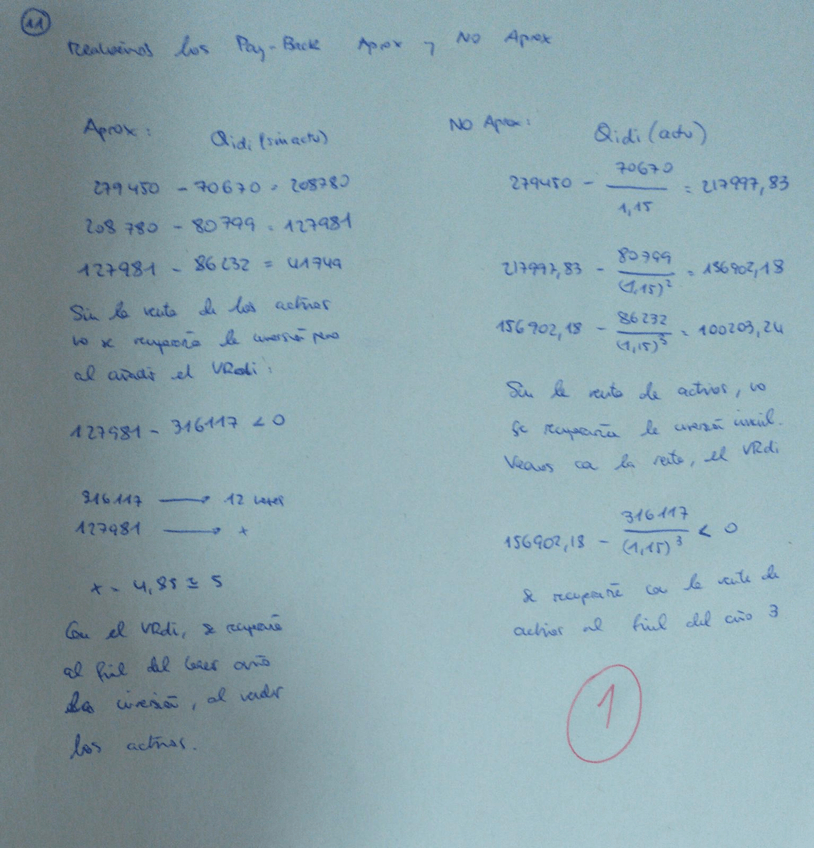 11
Realizamos los Pay-Back Aprox y No Aprox
Aprox:
Qidi (sin actu)
279450 - 70670 = 208780
208780 - 80799 = 127981
127981 - 86232 = 41749
Sin la venta de los activos
no se recuperaría la inversión pero
al añadir el VRdi:
127981 - 316117 < 0
316117 → 12 meses
127981 → x
x = 4,85 ≅ 5
Con el VRdi, se recupera
al final del tercer año
la inversión, al vender
los activos.
No Aprox:
Qidi (actu)
279450 - 70670 / 1,15 = 217997,83
217997,83 - 80799 / (1,15)² = 156902,18
156902,18 - 86232 / (1,15)³ = 100203,24
Sin la venta de activos, no
se recuperaría la inversión inicial.
Veamos con la venta, el VRdi
156902,18 - 316117 / (1,15)³ < 0
Se recuperaría con la venta de
activos al final del año 3
1